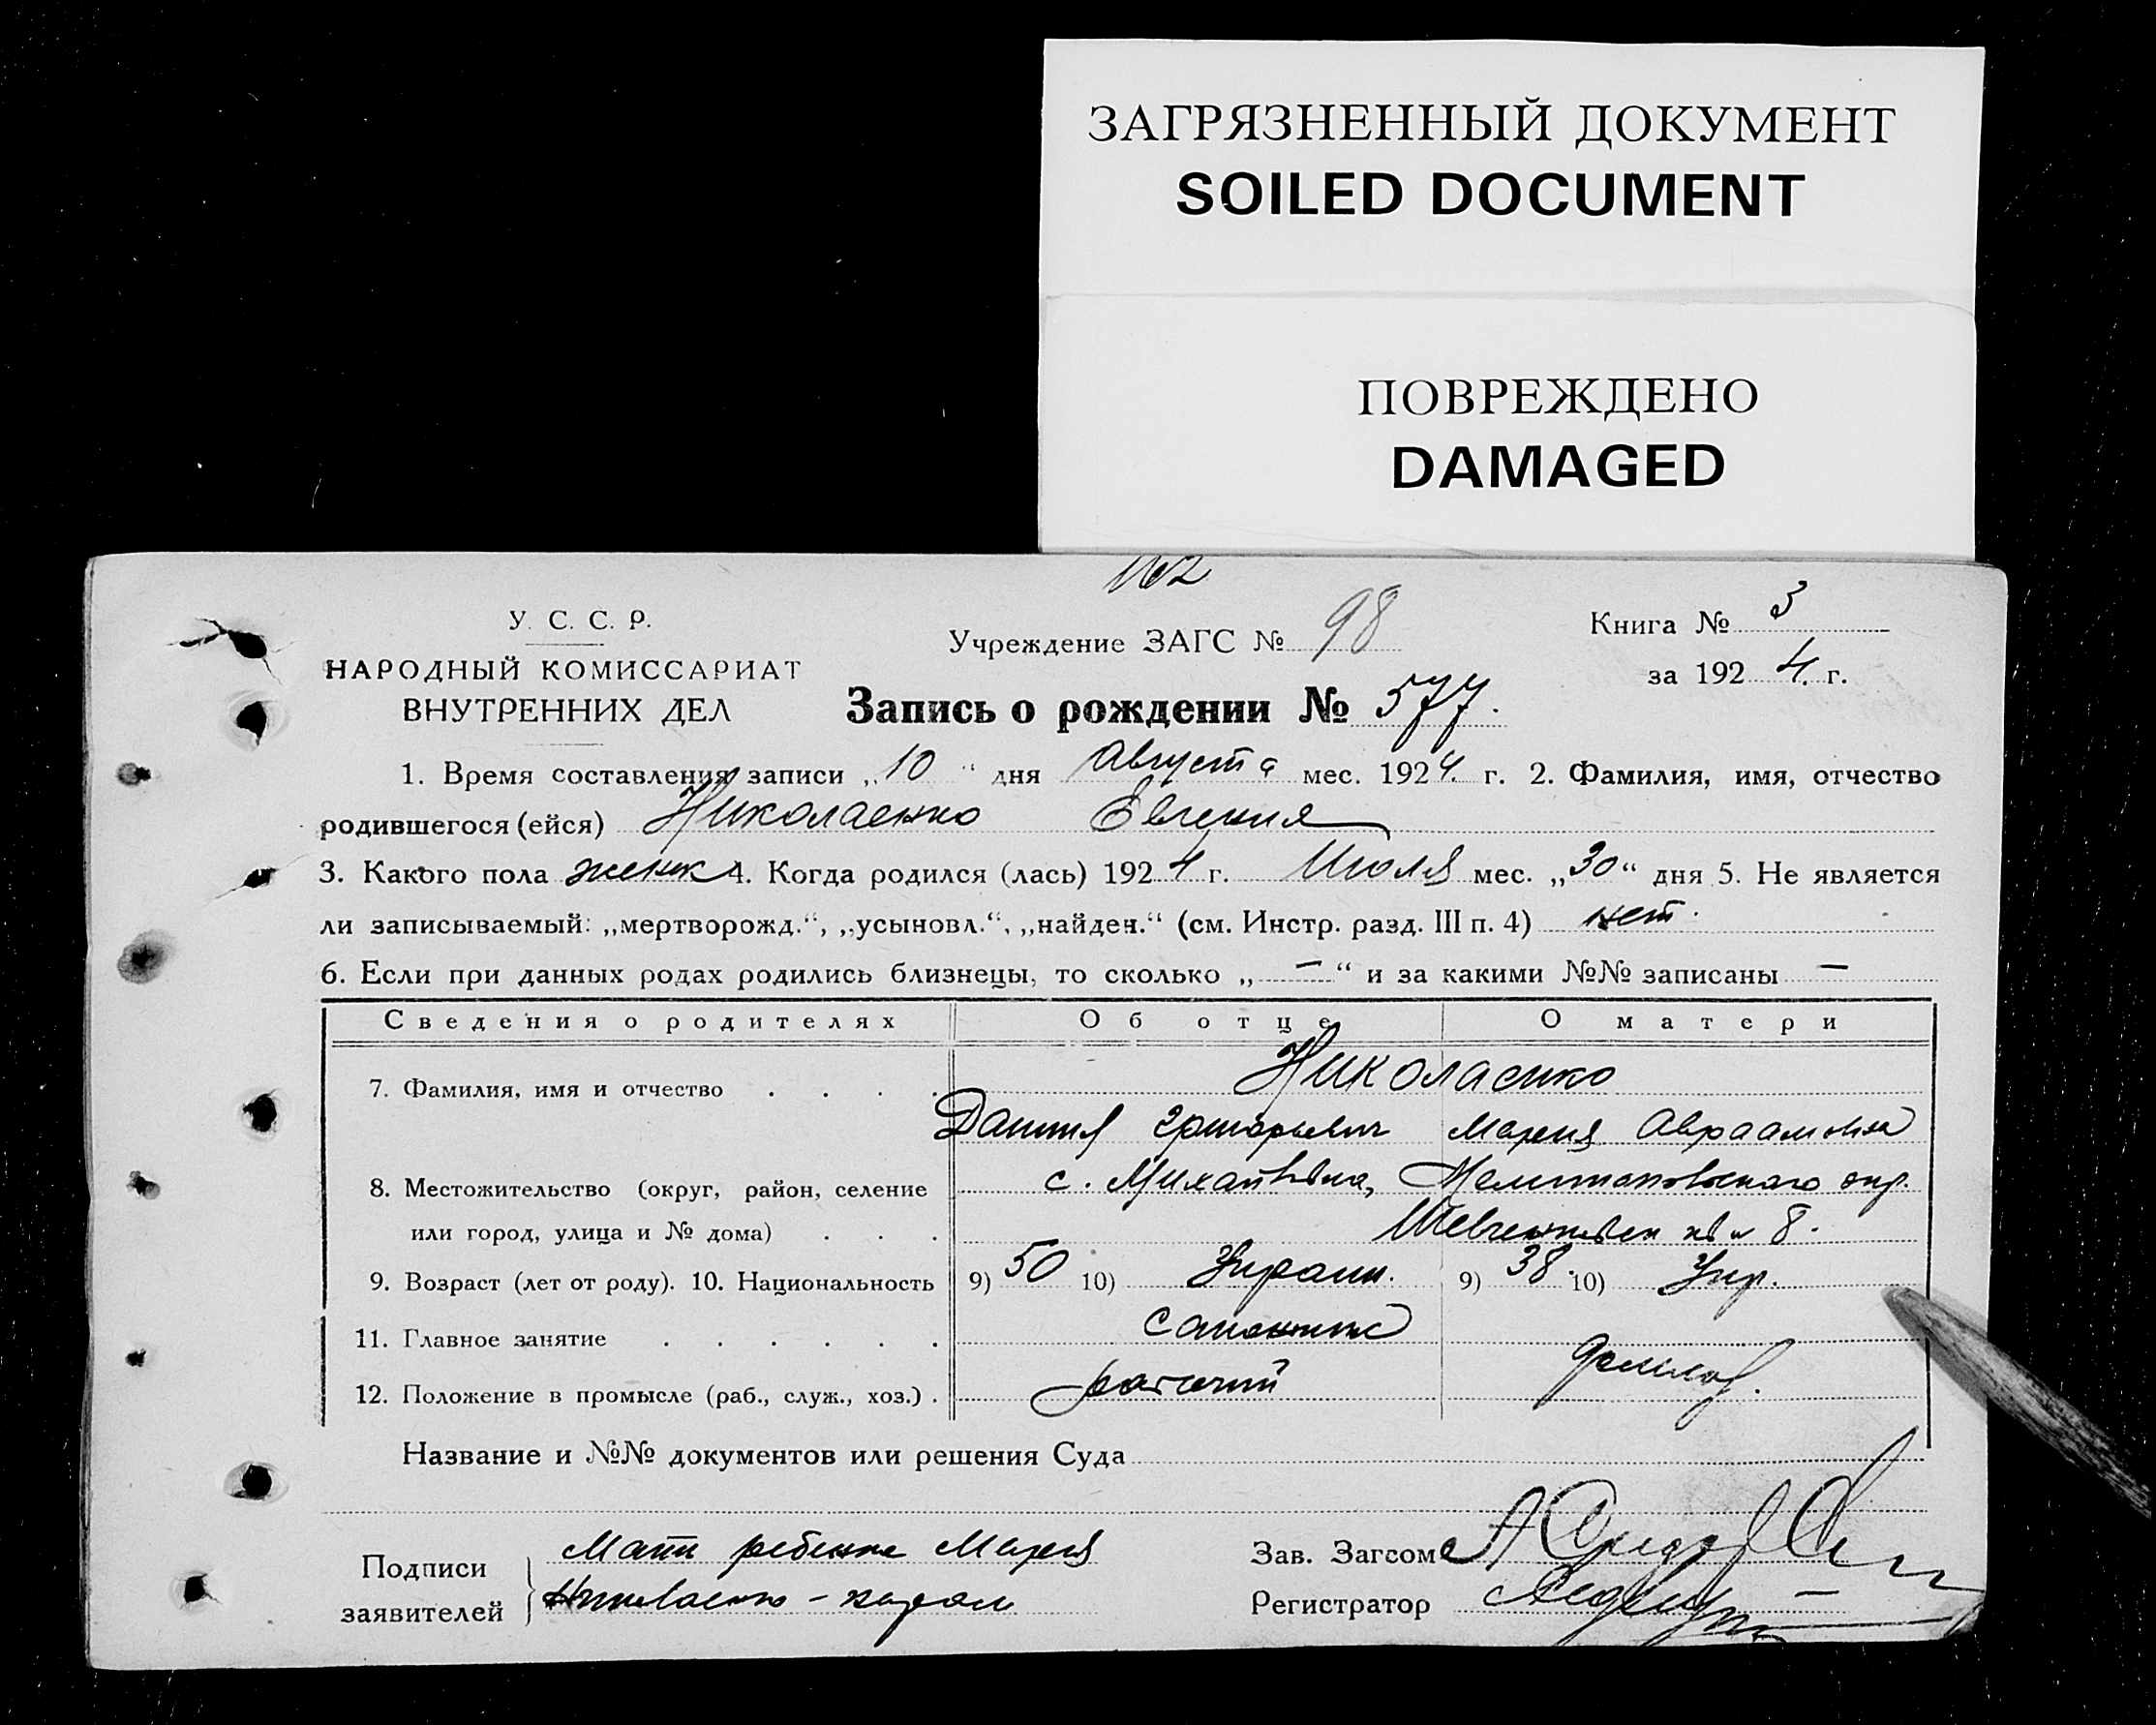 ЗАГРЯЗНЕННЫЙ ДОКУМЕНТ
SOILED DOCUMENT
ПОВРЕЖДЕНО
DAMAGED
162
У. С. С. Р.
НАРОДНЫЙ КОМИССАРИАТ
ВНУТРЕННИХ ДЕЛ
Учреждение ЗАГС № 98
Книга № 3
за 1924 г.
Запись о рождении № 577.
1. Время составления записи „10“ дня Августа мес. 1924 г. 2. Фамилия, имя, отчество
родившегося (ейся) Николаенко Евгения
3. Какого пола женск 4. Когда родился (лась) 1924 г. Июля мес. „30“ дня 5. Не является
ли записываемый: „мертворожд.“, „усыновл.“, „найден.“ (см. Инстр. разд. III п. 4) нет.
6. Если при данных родах родились близнецы, то сколько „—“ и за какими №№ записаны —
Сведения о родителях Об отце О матери
7. Фамилия, имя и отчество . . . . Николаенко
Даниил Григорьевич Мария Авраамовна
8. Местожительство (округ, район, селение с. Михайловка, Мелитопольского окр.
или город, улица и № дома) . . .
9. Возраст (лет от роду). 10. Национальность 9) 50 10) Украин. 9) 38 10) Укр.
11. Главное занятие . . . . . . сапожник
12. Положение в промысле (раб., служ., хоз.) . рабочий
Название и №№ документов или решения Суда
Подписи
заявителей
Мать ребенка Мария
Николаенко -
Зав. Загсом
Регистратор